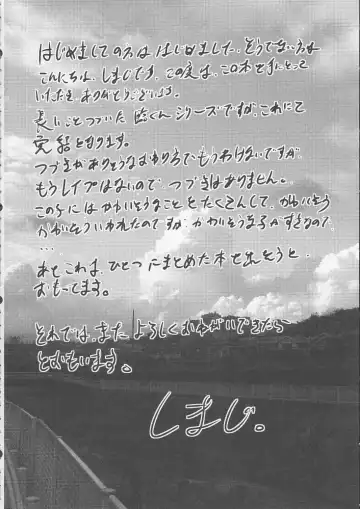 はじめましての方ははじめまして、そうでない方は
こんにちは、しまじです。この度は、この本を手にとって
いただき ありがとうございます。
長いことつづいた 臨くん シリーズですが、これにて
完結となります。
つづきがありそうなおわり方で もうしわけないですが、
もうレイプはないので、つづきはありません。
この子には かわいそうなことをたくさんして、かわいそう
かわいそういわれたのですが かわいそうな子がすきなので、
…
あと これは、ひとつにまとめた本を出そうと
おもってます。
それでは、また よろしくおねがいできたら
とおもいます。
しまじ。